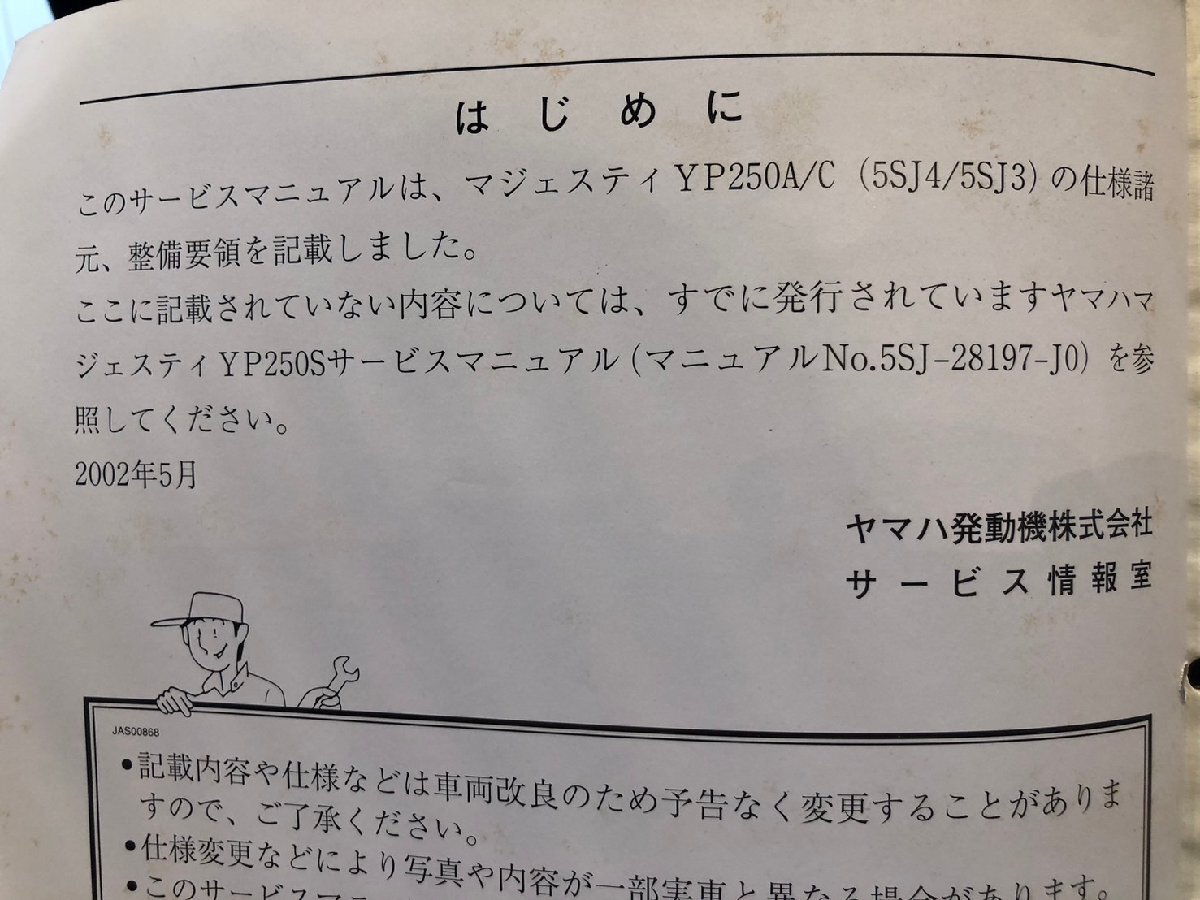 はじめに
このサービスマニュアルは、マジェスティYP250A/C（5SJ4/5SJ3）の仕様諸
元、整備要領を記載しました。
ここに記載されていない内容については、すでに発行されていますヤマハマ
ジェスティYP250Sサービスマニュアル（マニュアルNo.5SJ-28197-J0）を参
照してください。
2002年5月
ヤマハ発動機株式会社
サービス情報室
JAS00868
•記載内容や仕様などは車両改良のため予告なく変更することがありま
すので、ご了承ください。
•仕様変更などにより写真や内容が一部実車と異なる場合があります。
•このサービスマニ